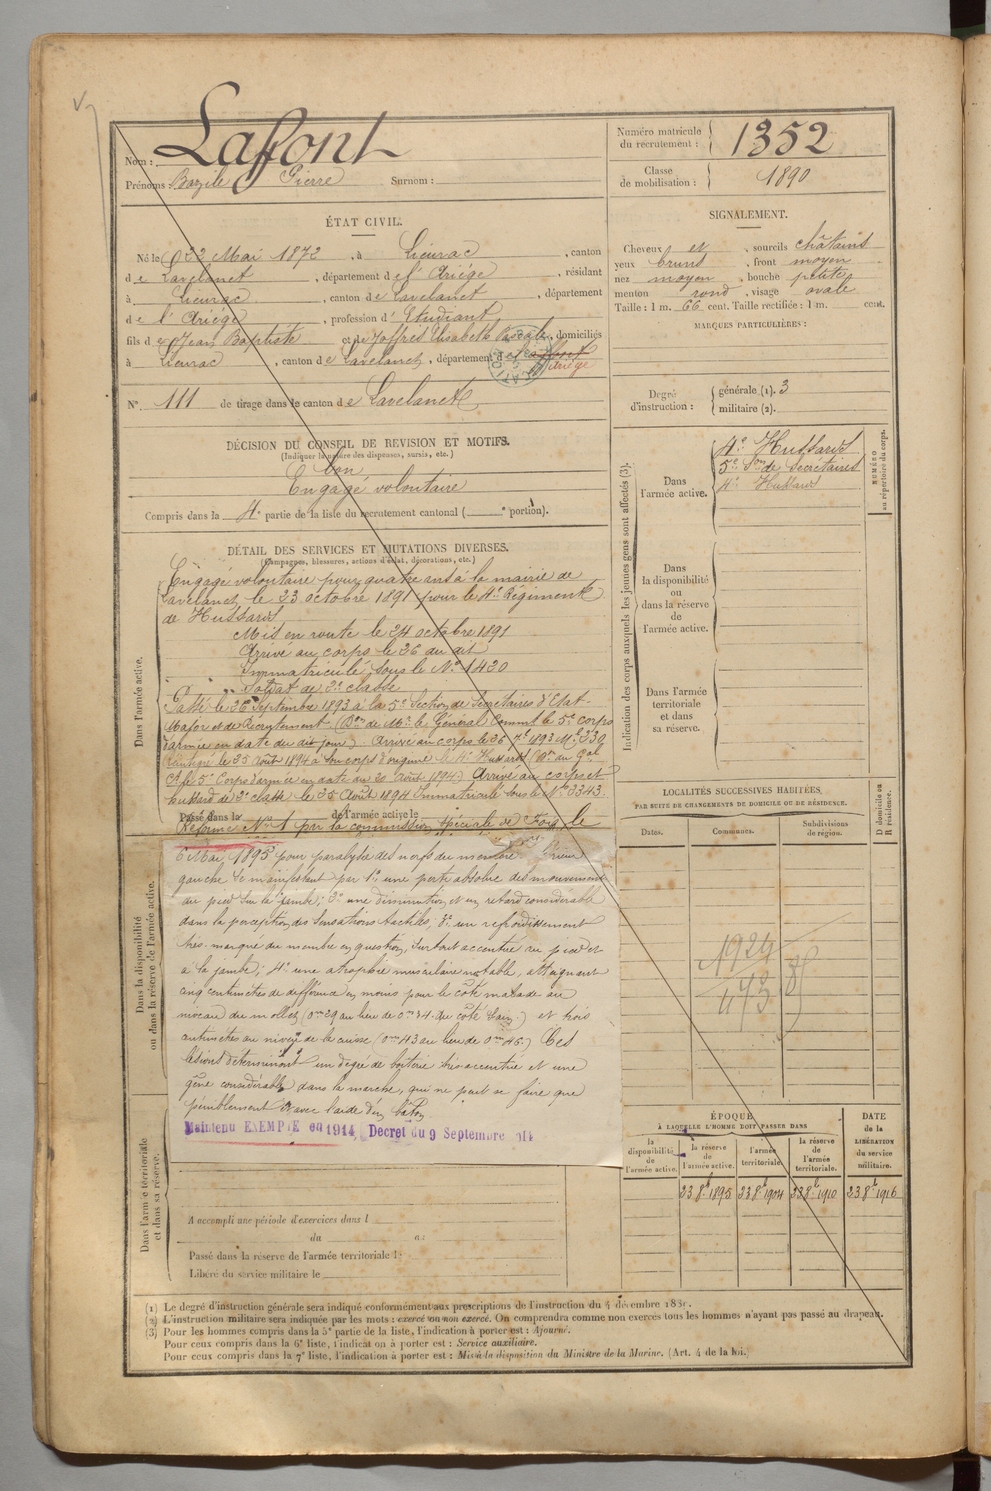 Nom : Lafont
Prénoms : Bazile Pierre Surnom :
Numéro matricule du recrutement : 1352
Classe de mobilisation : 1890
ÉTAT CIVIL.
Né le 22 Mai 1872, à Lieurac, canton
de Lavelanet, département de l'Ariège, résidant
à Lieurac, canton de Lavelanet, département
de l'Ariège, profession d'Etudiant
fils de Jean Baptiste et de Joffrès Elisabeth Pascale, domiciliés
à Lieurac, canton de Lavelanet, département de Lafont
l'Ariège
N° 111 de tirage dans le canton de Lavelanet
SIGNALEMENT.
Cheveux et, sourcils châtains
yeux bruns, front moyen
nez moyen, bouche petite
menton rond, visage ovale
Taille : 1 m. 66 cent. Taille rectifiée : 1 m. cent.
MARQUES PARTICULIÈRES :
Degré d'instruction : générale (1). 3
militaire (2).
DÉCISION DU CONSEIL DE REVISION ET MOTIFS.
(Indiquer la nature des dispenses, sursis, etc.)
bon
Engagé volontaire
Compris dans la 4e partie de la liste du recrutement cantonal ( e portion).
DÉTAIL DES SERVICES ET MUTATIONS DIVERSES.
(Campagnes, blessures, actions d'éclat, décorations, etc.)
Dans l'armée active.
Engagé volontaire pour quatre ans à la mairie de
Lavelanet le 23 octobre 1891 pour le 4e Régiment
de Hussards
Mis en route le 24 octobre 1891
Arrivé au corps le 26 du dit
Immatriculé sous le No 1420
Soldat de 2e classe
Passé le 26 Septembre 1893 à la 5e Section de Secrétaires d'Etat-
Major et de Recrutement (Don de Mr le Général Commt le 5e corps
d'armée en date du dit jour). Arrivé au corps le 26 7bre 1893 Mle 330
réintégré le 25 Août 1894 à son corps d'origine le 4e Hussards (Don du Gal
Ct le 5e Corps d'armée en date du 20 Août 1894) Arrivé au corps et
hussard de 2e classe le 25 Août 1894 Immatriculé sous le No 3343.
Passé dans la de l'armée active le
Réformé No 1 par la commission spéciale de Foix, le
Dans la disponibilité ou dans la réserve de l'armée active.
6 Mai 1895 pour paralysie des nerfs du membre
gauche se manifestant par 1o une perte absolue des mouvements
du pied sur la jambe; 2o une diminution et un retard considérable
dans la perception des sensations tactiles; 3o un refroidissement
très marqué du membre en question, surtout accentué au pied et
à la jambe; 4o une atrophie musculaire notable, atteignant
cinq centimètres de différence en moins pour le côté malade au
niveau du mollet (0m29 au lieu de 0m34 du côté sain) et trois
centimètres au niveau de la cuisse (0m43 au lieu de 0m46.) Ces
lésions déterminent un degré de boiterie très accentué et une
gêne considérable dans la marche, qui ne peut se faire que
péniblement avec l'aide d'un bâton.
Maintenu EXEMPTE en 1914, Décret du 9 Septembre 1914
Dans l'armée territoriale et dans sa réserve.
A accompli une période d'exercices dans l
du au
Passé dans la réserve de l'armée territoriale l
Libéré du service militaire le
Indication des corps auxquels les jeunes gens sont affectés (3).
NUMÉRO au répertoire du corps.
Dans l'armée active.
4e Hussards
5e Son de Secrétaires
4e Hussards
Dans la disponibilité ou dans la réserve de l'armée active.
Dans l'armée territoriale et dans sa réserve.
LOCALITÉS SUCCESSIVES HABITÉES,
PAR SUITE DE CHANGEMENTS DE DOMICILE OU DE RÉSIDENCE.
Dates. Communes. Subdivisions de région. D domicile ou R résidence.
1924
473
ÉPOQUE
À LAQUELLE L'HOMME DOIT PASSER DANS
DATE de la LIBÉRATION du service militaire.
la disponibilité de l'armée active.
la réserve de l'armée active.
l'armée territoriale.
la réserve de l'armée territoriale.
23 8bre 1895 23 8bre 1904 23 8bre 1910 23 8bre 1916
(1) Le degré d'instruction générale sera indiqué conformément aux prescriptions de l'instruction du 4 décembre 1889.
(2) L'instruction militaire sera indiquée par les mots : exercé ou non exercé. On comprendra comme non exercés tous les hommes n'ayant pas passé au drapeau.
(3) Pour les hommes compris dans la 5e partie de la liste, l'indication à porter est : Ajourné.
Pour ceux compris dans la 6e liste, l'indication à porter est : Service auxiliaire.
Pour ceux compris dans la 7e liste, l'indication à porter est : Mis à la disposition du Ministre de la Marine. (Art. 4 de la loi.)